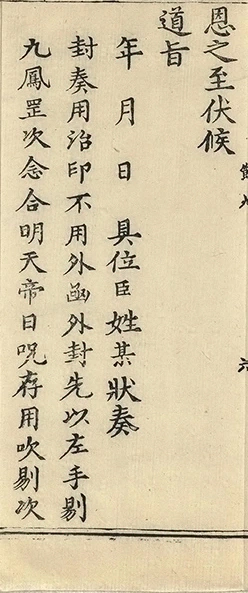 恩之至伏候
道旨
年月日 具位臣姓某狀奏
封奏用治印不用外函外封先以左手剔
九鳳罡次念合明天帝日咒存用吹剔次
六